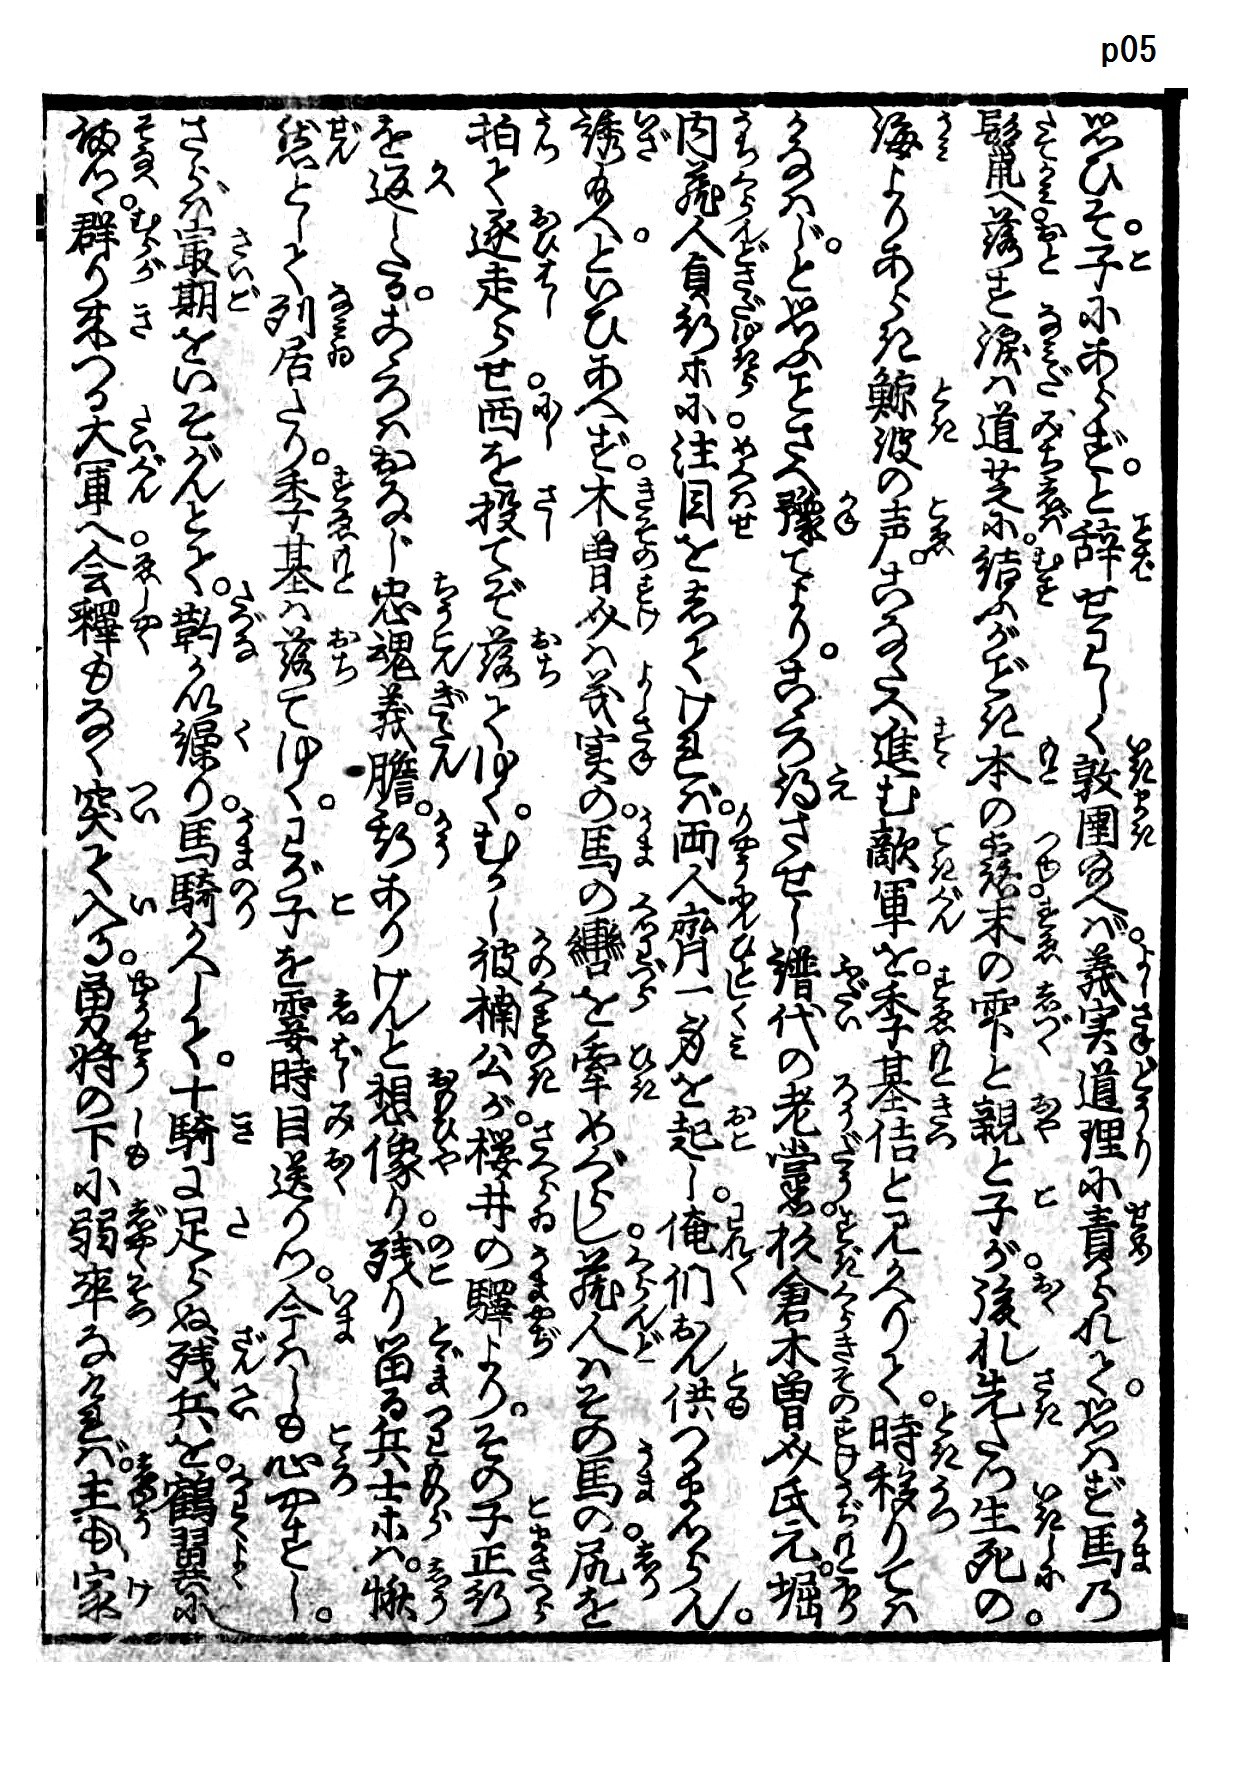 p05
思ひそ。子にあらずと。辞せわしく敦圉給へば。義実道理に責られて。思はず馬乃
鬣へ。落す涙は道芝に。結ぶがごとき本の露。末の雫と親と子が。後れ先たつ生死の。
海よりあらき鯨波の声。こなたへ進む敵軍を。季基佶と見かへりて。時移りては
かなはじ。と思ふことさへ豫てより。こゝろ得させし譜代の老黨。杉倉木曽介氏元。堀
内蔵人貞行等に。注目をしてければ。両人齊一身を起し。俺們おん供つかまつらん。
誘給へ。といひあへず。木曽介は義実の。馬の轡を牽めぐらし。蔵人はその馬の。尻を
拍て逐走らせ。西を投てぞ落てゆく。むかし彼楠公が。桜井の驛より。その子正行
を返したる。こゝろはおなじ忠魂義膽。斯ありけんと想像り。残り留る兵士等は。愀
然として列居たり。季基は落てゆく。わが子を霎時目送りつ。今はしも心やすし。
さらば最期をいそがんとて。鞆かい繰り。馬騎かへして。十騎に足らぬ残兵を。鶴翼に
備へ。群り来つる大軍へ。会釋もなく突て入る。勇将の下に弱卒なければ。主も家